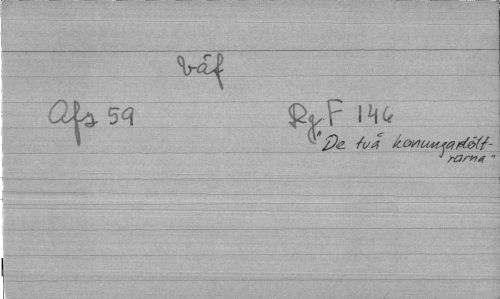 väf
Afz 59 Rg F 146
"De två konungadött-
rarna"